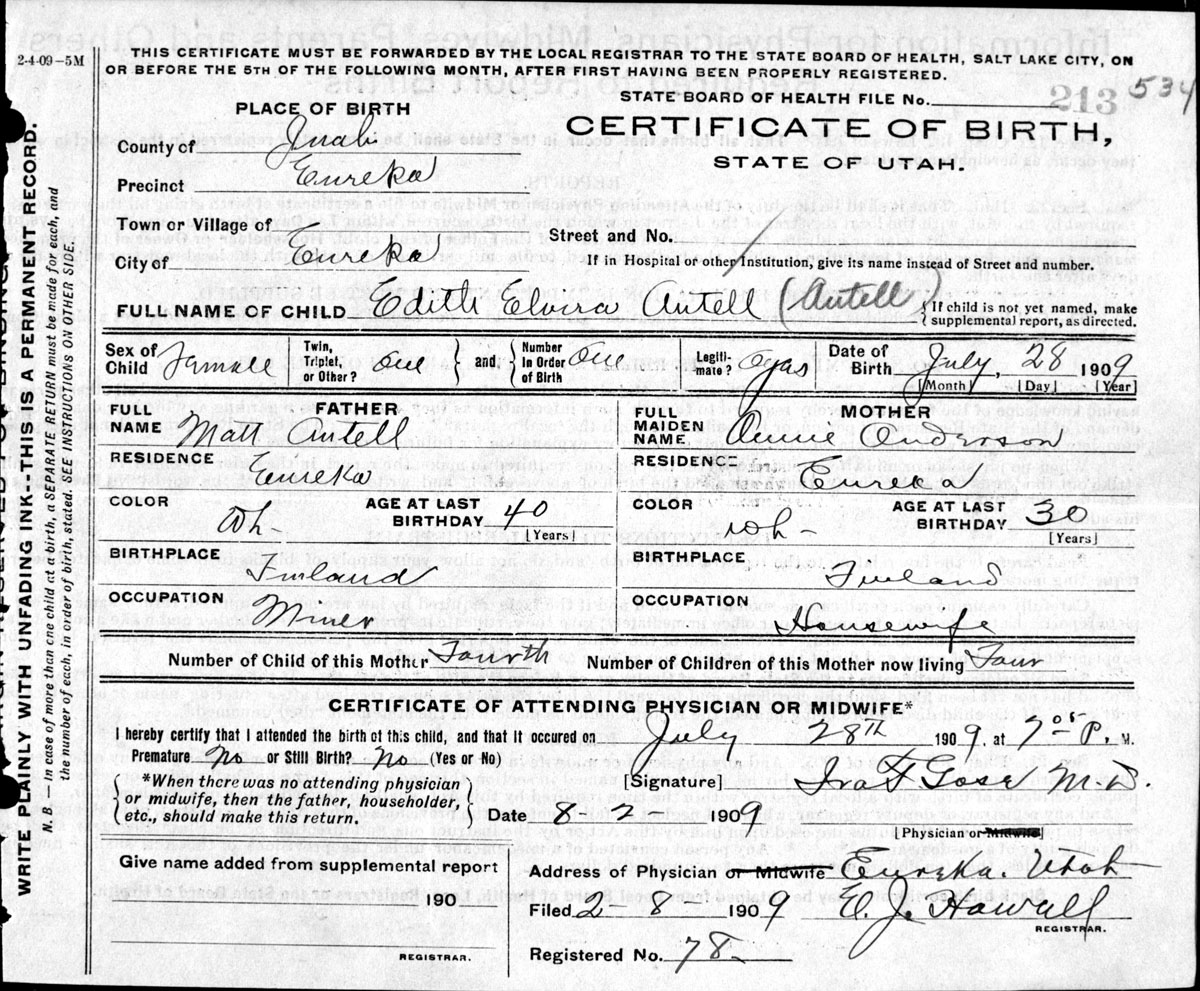 2-4-09-5M
THIS CERTIFICATE MUST BE FORWARDED BY THE LOCAL REGISTRAR TO THE STATE BOARD OF HEALTH, SALT LAKE CITY, ON
OR BEFORE THE 5TH OF THE FOLLOWING MONTH, AFTER FIRST HAVING BEEN PROPERLY REGISTERED.
STATE BOARD OF HEALTH FILE No. 213 534
PLACE OF BIRTH
CERTIFICATE OF BIRTH,
STATE OF UTAH.
County of Juab
Precinct Eureka
Town or Village of
Street and No.
City of Eureka
If in Hospital or other Institution, give its name instead of Street and number.
FULL NAME OF CHILD Edith Elvira Antell (Antell)
{ If child is not yet named, make
supplemental report, as directed.
Sex of Child Female
Twin, Triplet, or Other? one } and { Number In Order of Birth one
Legiti-mate? Date of Birth July, 28 1909
[Month] [Day] [Year]
FATHER
FULL NAME Matt Antell
MOTHER
FULL MAIDEN NAME, Annie Anderson
RESIDENCE Eureka
RESIDENCE Eureka
COLOR Wh- AGE AT LAST BIRTHDAY 40 [Years]
COLOR Wh- AGE AT LAST BIRTHDAY 30 [Years]
BIRTHPLACE Finland
BIRTHPLACE Finland
OCCUPATION Miner
OCCUPATION Housewife
Number of Child of this Mother Fourth Number of Children of this Mother now living Four
CERTIFICATE OF ATTENDING PHYSICIAN OR MIDWIFE*
I hereby certify that I attended the birth of this child, and that it occured on July 28th 1909, at 7 05 P. M.
Premature No or Still Birth? No (Yes or No)
*When there was no attending physician
or midwife, then the father, householder,
etc., should make this return.
[Signature] M.D.
Date 8-2 1909
[Physician or Midwife]
Give name added from supplemental report
190
REGISTRAR.
Address of Physician or Midwife Eureka. Utah
Filed 2-8 1909 E. J. Howell
REGISTRAR.
Registered No. 78-
WRITE PLAINLY WITH UNFADING INK—THIS IS A PERMANANT RECORD.
N. B. — In case of more than one child at a birth, a SEPARATE RETURN must be made for each, and
the number of each, in order of birth, stated. SEE INSTRUCTIONS ON OTHER SIDE.